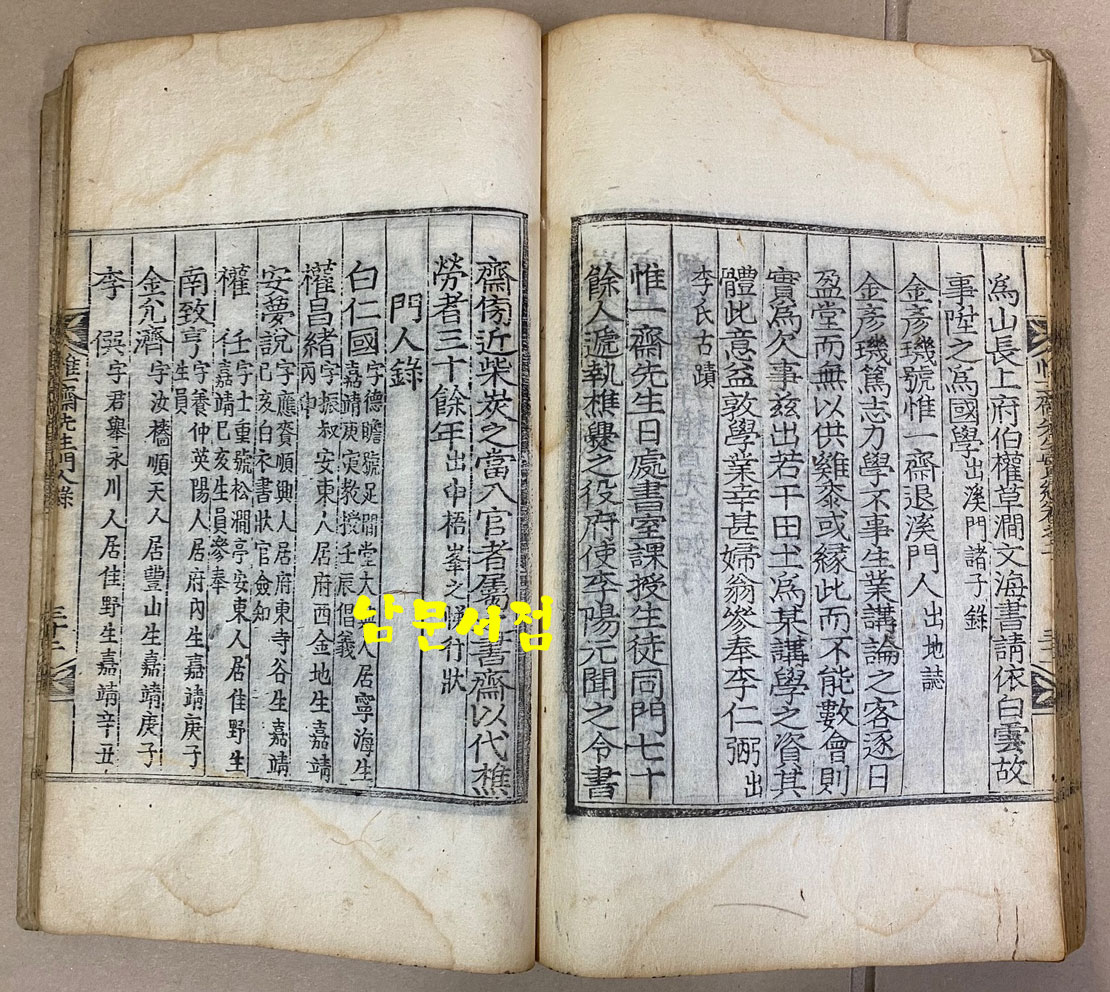 爲山長上府伯權草澗文海書請依白雲故
事陞之爲國學出溪門諸子錄
金彥璣號惟一齋退溪門人出地誌
金彥璣篤志力學不事生業講論之客逐日
盈堂而無以供雞黍或緣此而不能數會則
實爲欠事玆出若干田土爲某講學之資其
體此意益敦學業幸甚婦翁參奉李仁弼出
李氏古蹟
惟一齋先生日處書室課授生徒同門七十
餘人遞執樵爨之役府使李陽元聞之令書
齋傍近柴炭之當入官者屬書齋以代樵
勞者三十餘年出申梧峯之悌行狀
門人錄
白仁國字德瞻號足閒堂大人居寧海生
嘉靖庚寅敎授壬辰倡義
權昌緖字振叔安東人居府西金地生嘉靖
丙申
安夢說字應賚順興人居府東寺谷生嘉靖
己亥白衣書狀官僉知
權任字士重號松澗亭安東人居佳野生
嘉靖己亥生員參奉
南致亨字養仲英陽人居府內生嘉靖庚子
生員
金允濟字汝檣順天人居豐山生嘉靖庚子
李僎字君擧永川人居佳野生嘉靖辛丑
惟一齋先生門人錄
남문서점